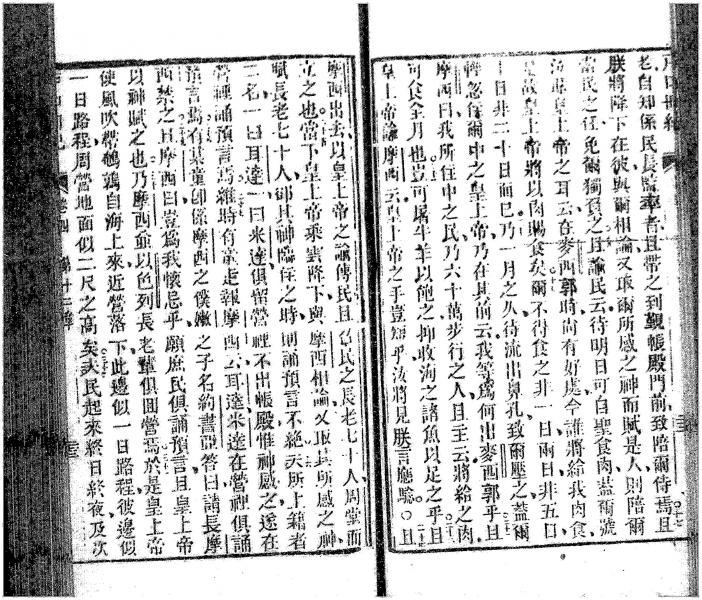 老自知係民長監率者且帶之到覲帳殿門前致陪爾侍焉且
朕將降下在彼與爾相論又取爾所感之神而賦是人則陪爾
當民之任免爾獨負之且諭民云待明日可自聖食肉葢爾號
泣達皇上帝之耳云在麥西郭時尚有好處今誰將給我肉食
是故皇上帝將以肉賜食矣爾不得食之非一日兩日非五日
十日非二十日而已乃一月之久待流出鼻孔致爾壓之葢爾
輕忽徃爾中之皇上帝乃在其前云我等爲何出麥西郭乎且
摩西曰我所住中之民乃六十萬步行之人且主云將給之肉
可食全月也豈可屠牛羊以飽之抑收海之諸魚以足之乎且
皇上帝諭摩西云皇上帝之手豈短乎汝將見朕言應驗○且
摩西出去以皇上帝之諭傳民且召民之長老七十人周堂而
立之也當下皇上帝乘雲降下與摩西相論又取其所感之神
賦長老七十人卽其神臨徃之時則誦預言不絕夾所上籍者
二名一曰耳達一曰米達俱留營裡不出帳殿惟神感之遂在
營裡誦預言焉維時有童走報摩西云耳達米達在營裡俱誦
預言焉有某童卽係摩西之僕嫩之子名約書亞答曰請長摩
西禁之且摩西曰豈爲我懷忌乎願庶民俱誦預言且皇上帝
以神賦之也乃摩西俞以色列長老輩俱囬營焉於是皇上帝
使風吹帶鵪鶉自海上來近營落下此邊似一日路程彼邊似
一日路程周營地面似二尺之高矣夫民起來終日終夜及次
卷四